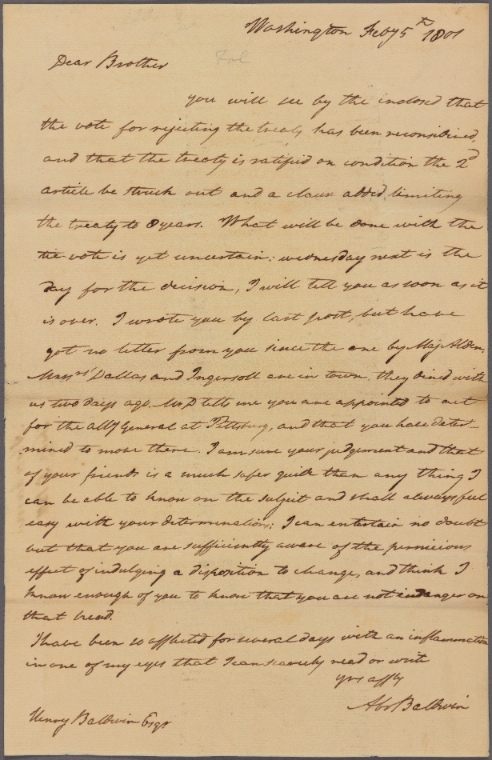 Washington Feby 5th 1801
Dear Brother
you will see by the inclosed that
the vote for rejecting the treaty has been reconsidered,
and that the treaty is ratified on condition the 2d
article be struck out and a clause added limiting
the treaty to 8 years. What will be done with the
tie vote is yet uncertain; wednesday next is the
day for the decision, I will tell you as soon as it
is over. I wrote you by last post, but have
got no letter from you since the one by Maj Alden,
Messrs Dallas and Ingersoll are in town, they dined with
us two days ago. Mr D tells me you are appointed to act
for the Atty General at Pittsburg, and that you have deter-
mined to move there, I am sure your judgement and that
of your friends is a much safer guide than any thing I
can be able to know on the subject and shall always feel
easy with your determinations; I can entertain no doubt
but that you are sufficiently aware of the pernicious
effect of indulging a disposition to change, and think I
know enough of you to know that you are not in danger on
that head.
I have been so afflicted for several days with an inflammation
in one of my eyes that I can scarcely read or write
yrs affly
Abr Baldwin
Henry Baldwin Esqr